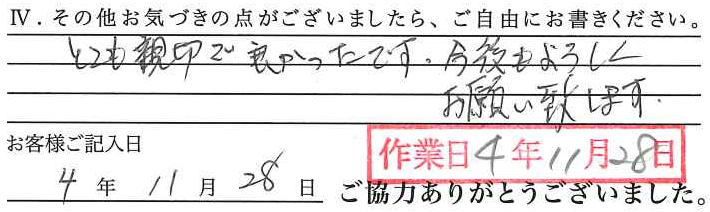 Ⅳ．その他お気づきの点がございましたら、ご自由にお書きください。
とても親切で良かったです。今後もよろしく
お願い致します.
お客様ご記入日
作業日4年11月28日
4年11月28日 ご協力ありがとうございました。